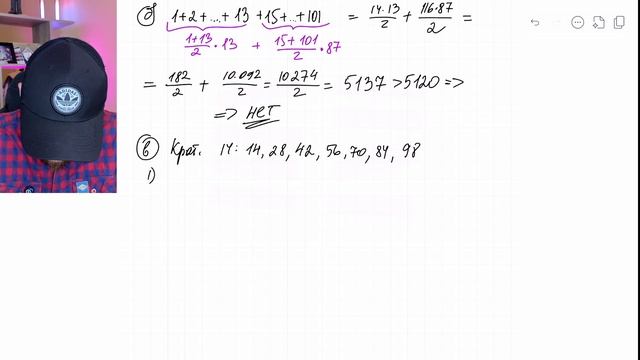 б) 1+2+...+13+15+...+101 = 14·13/2 + 116·87/2 =
1+13/2·13 + 15+101/2·87
= 182/2 + 10.092/2 = 10274/2 = 5137 > 5120 =>
=> нет
в) Крат. 14: 14, 28, 42, 56, 70, 84, 98
1)